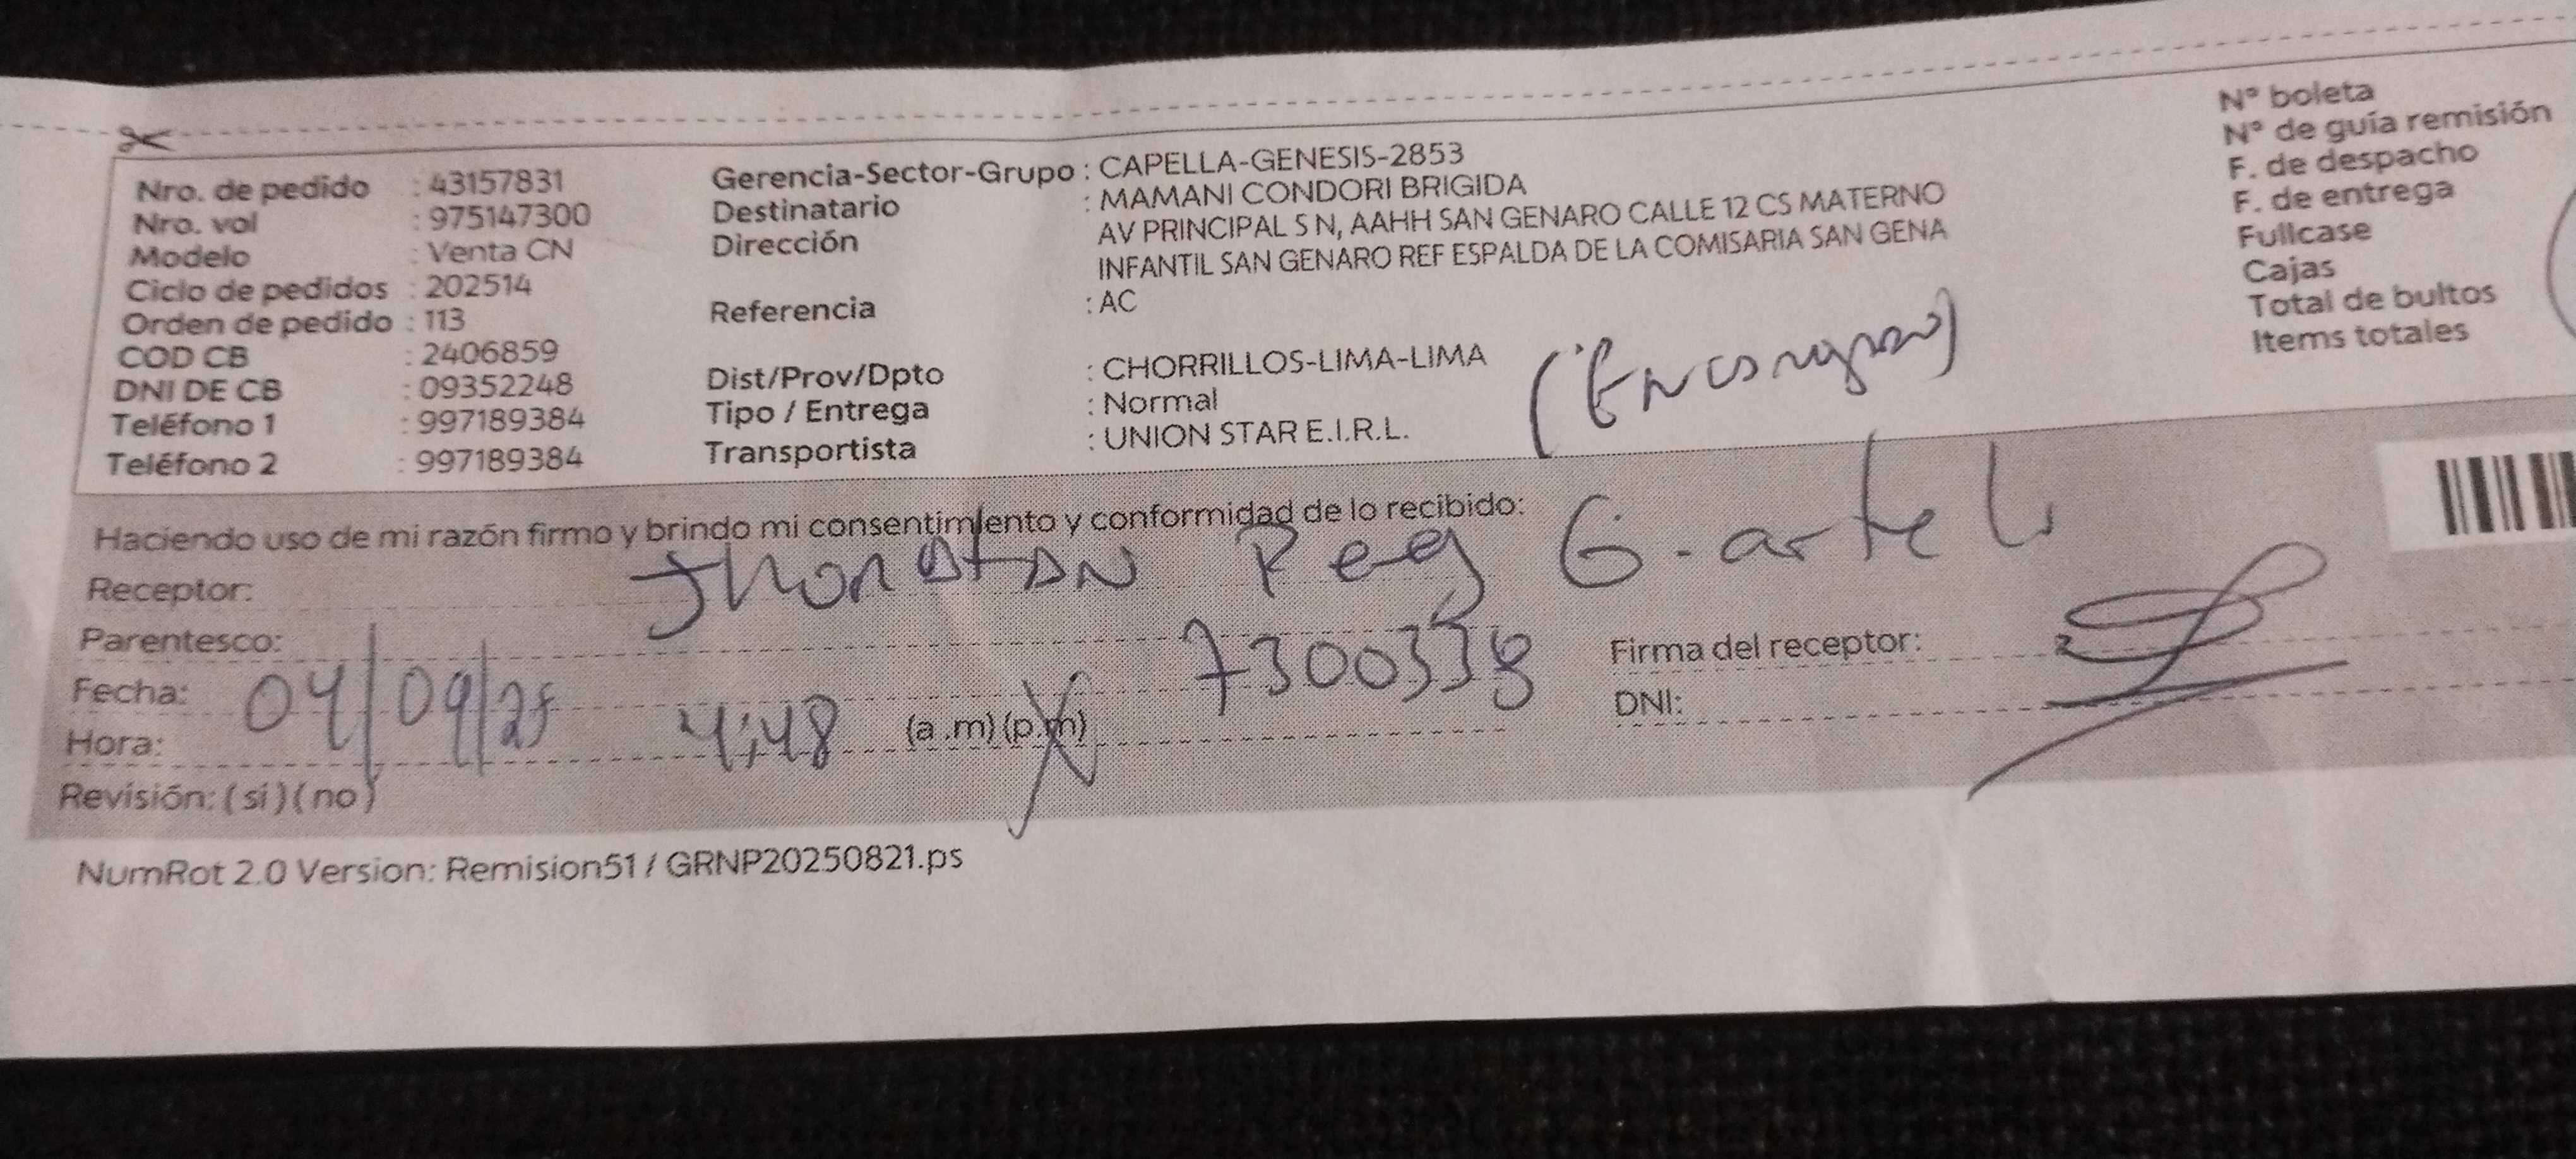 Nro. de pedido : 43157831
Nro. vol : 975147300
Modelo : Venta CN
Ciclo de pedidos : 202514
Orden de pedido : 113
COD CB : 2406859
DNI DE CB : 09352248
Teléfono 1 : 997189384
Teléfono 2 : 997189384
Gerencia-Sector-Grupo : CAPELLA-GENESIS-2853
Destinatario : MAMANI CONDORI BRIGIDA
Dirección AV PRINCIPAL S N, AAHH SAN GENARO CALLE 12 CS MATERNO
INFANTIL SAN GENARO REF ESPALDA DE LA COMISARIA SAN GENA
Referencia : AC
Dist/Prov/Dpto : CHORRILLOS-LIMA-LIMA
Tipo / Entrega : Normal
Transportista : UNION STAR E.I.R.L.
N° boleta
N° de guía remisión
F. de despacho
F. de entrega
Fullcase
Cajas
Total de bultos
Items totales
Haciendo uso de mi razón firmo y brindo mi consentimiento y conformidad de lo recibido:
Receptor: Jhonatan
Parentesco: 7300338
Fecha: 04/09/25
Hora: 4:48 (a.m) (p.m)
Revisión: (si) (no)
Firma del receptor:
DNI:
NumRot 2.0 Version: Remision51 / GRNP20250821.ps